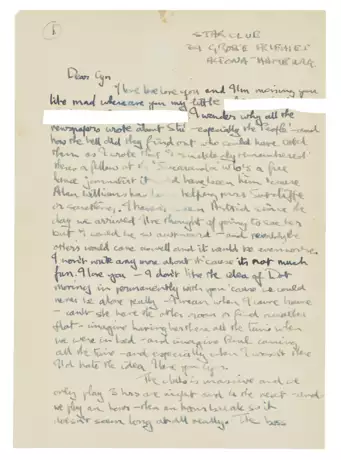 ①
STAR CLUB
39 GROSSE FREIHEIT
ALTONA HAMBURG
Dear Cyn
I love love love you and I'm missing you
like mad where are you my little
I wonder why all the
newspapers wrote about Stu - especially the 'People' - and
how the hell did they find out who could have told
them as I wrote that I suddenly remembered
there's a fellow at the 'Jacaranda' who's a free
lance journalist it could have been him because
Allan Williams has been helping mrs Sutcliffe
or something. I haven't seen Astrid since the
day we arrived I've thought of going to see her
but I would be so awkward - and probably the
others would come as well and it would be even worse.
I won't write any more about it 'cause it's not much
fun. I love you - I don't like the idea of Dot
moving in permanently with you 'cause we could
never be alone really - I mean when I come home
- can't she have the other room or find another
flat - imagine having her there all the time when
we were in bed - and imagine Paul coming
all the time - and especially when I wasn't there
I'd hate the idea. I love you Cyn
The club is massive and we
only play 3 hours one night and 4 the next - and
we play an hour - then an hours break so it
doesn't seem long at all really. The boss